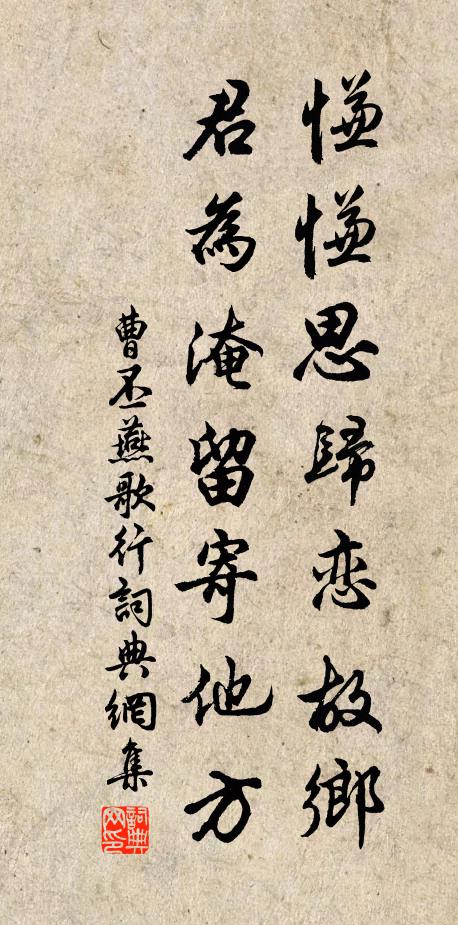 慊慊思歸恋故鄉
君為淹留寄他方
曹丕燕歌行詞典網集
詞典网印